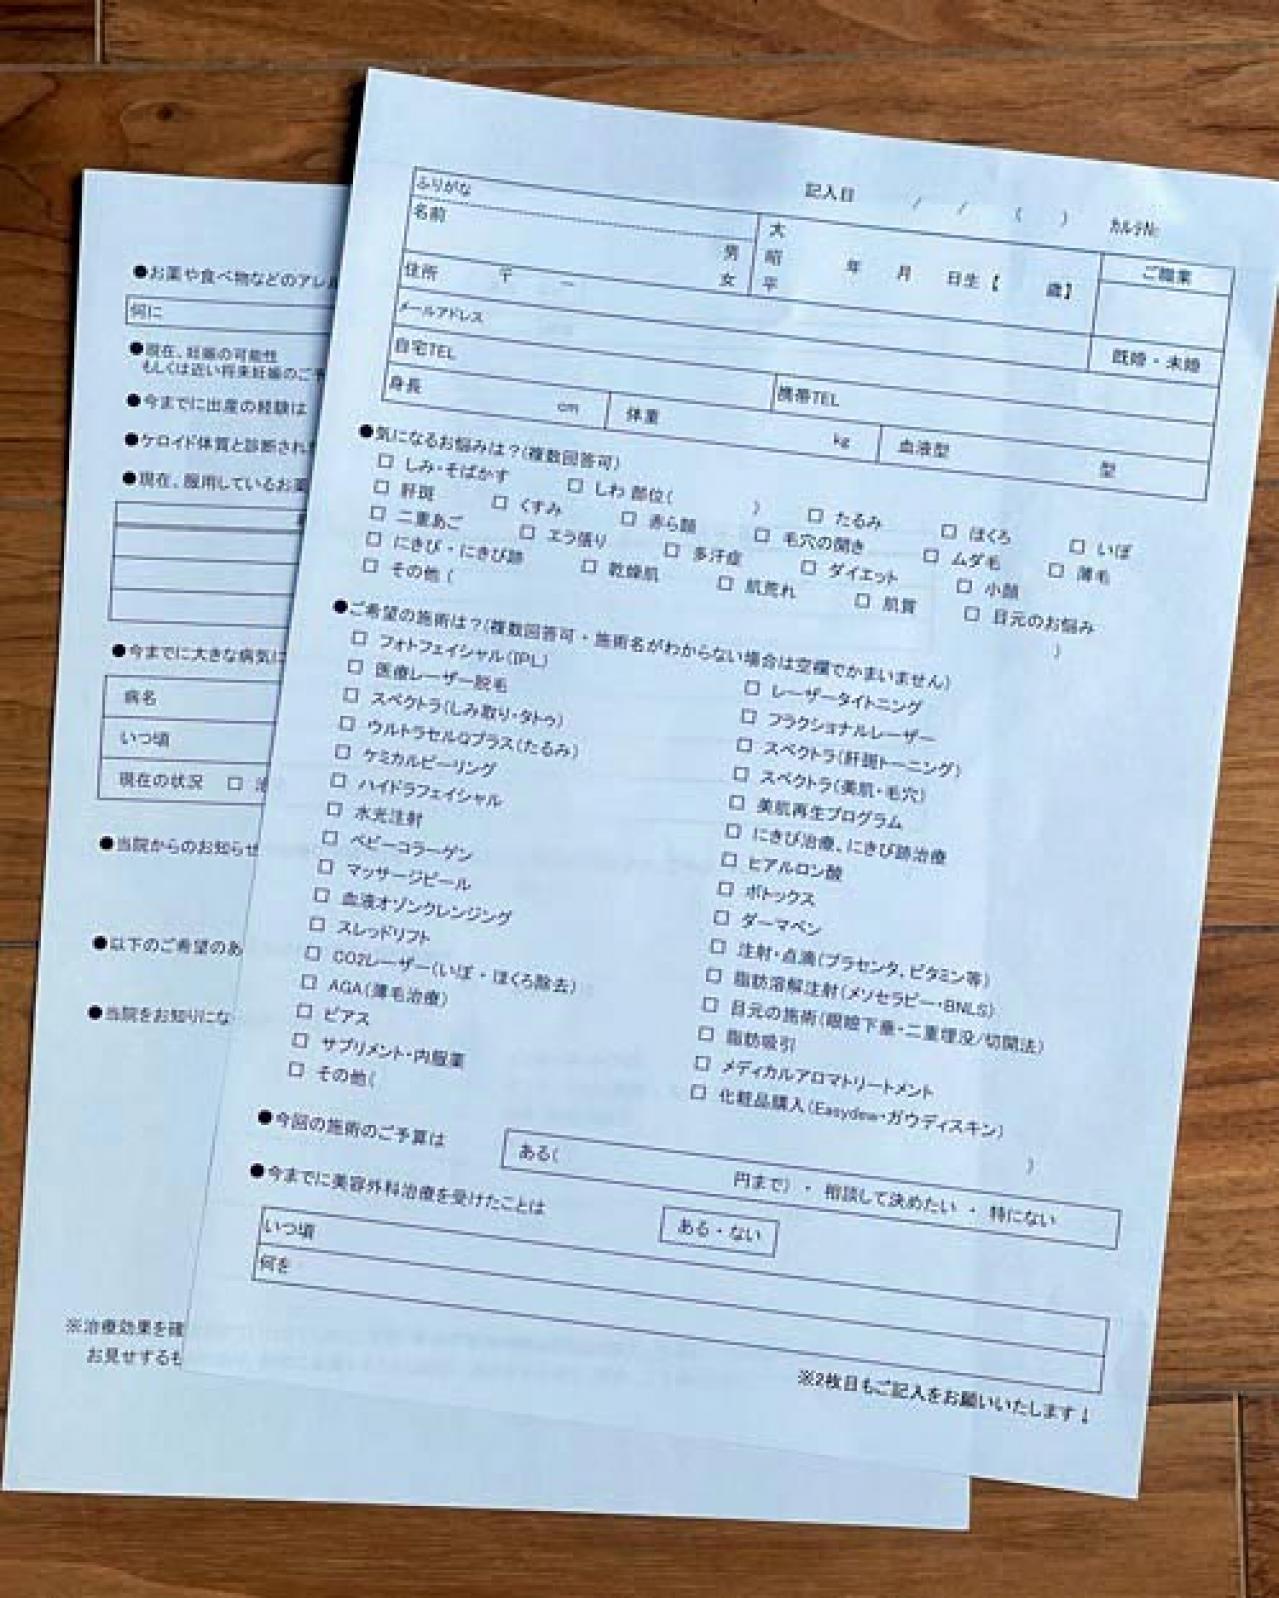 記入日 / / ( ) ｶﾙﾃ№
ふりがな
名前
男
女
大
昭
平
年 月 日生【 歳】
ご職業
住所 〒 －
メールアドレス
既婚・未婚
自宅TEL
携帯TEL
身長 cm 体重 kg 血液型 型
●気になるお悩みは？(複数回答可)
□ しみ・そばかす □ しわ 部位( ) □ たるみ □ ほくろ □ いぼ
□ 肝斑 □ くすみ □ 赤ら顔 □ 毛穴の開き □ ムダ毛 □ 薄毛
□ 二重あご □ エラ張り □ 多汗症 □ ダイエット □ 小顔
□ にきび・にきび跡 □ 乾燥肌 □ 肌荒れ □ 肌質 □ 目元のお悩み
□ その他 ( )
●ご希望の施術は？(複数回答可・施術名がわからない場合は空欄でかまいません)
□ フォトフェイシャル(IPL)
□ 医療レーザー脱毛
□ スペクトラ(しみ取り・タトゥ)
□ ウルトラセルQプラス(たるみ)
□ ケミカルピーリング
□ ハイドラフェイシャル
□ 水光注射
□ ベビーコラーゲン
□ マッサージピール
□ 血液オゾンクレンジング
□ スレッドリフト
□ CO2レーザー(いぼ・ほくろ除去)
□ AGA(薄毛治療)
□ ピアス
□ サプリメント・内服薬
□ その他( )
□ レーザータイトニング
□ フラクショナルレーザー
□ スペクトラ(肝斑トーニング)
□ スペクトラ(美肌・毛穴)
□ 美肌再生プログラム
□ にきび治療、にきび跡治療
□ ヒアルロン酸
□ ボトックス
□ ダーマペン
□ 注射・点滴(プラセンタ、ビタミン等)
□ 脂肪溶解注射(メソセラピー・BNLS)
□ 目元の施術(眼瞼下垂・二重埋没/切開法)
□ 脂肪吸引
□ メディカルアロマトリートメント
□ 化粧品購入(Easydew・ガウディスキン)
●今回の施術のご予算は
ある( 円まで) ・ 相談して決めたい ・ 特にない
●今までに美容外科治療を受けたことは
ある・ない
いつ頃
何を
※2枚目もご記入をお願いいたします↓
●お薬や食べ物などのアレル
何に
●現在、妊娠の可能性
もしくは近い将来妊娠のご予
●今までに出産の経験は
●ケロイド体質と診断され
●現在、服用しているお薬
●今までに大きな病気に
病名
いつ頃
現在の状況 □
●当院からのお知らせ
●以下のご希望のあ
●当院をお知りにな
※治療効果を確
お見せするも